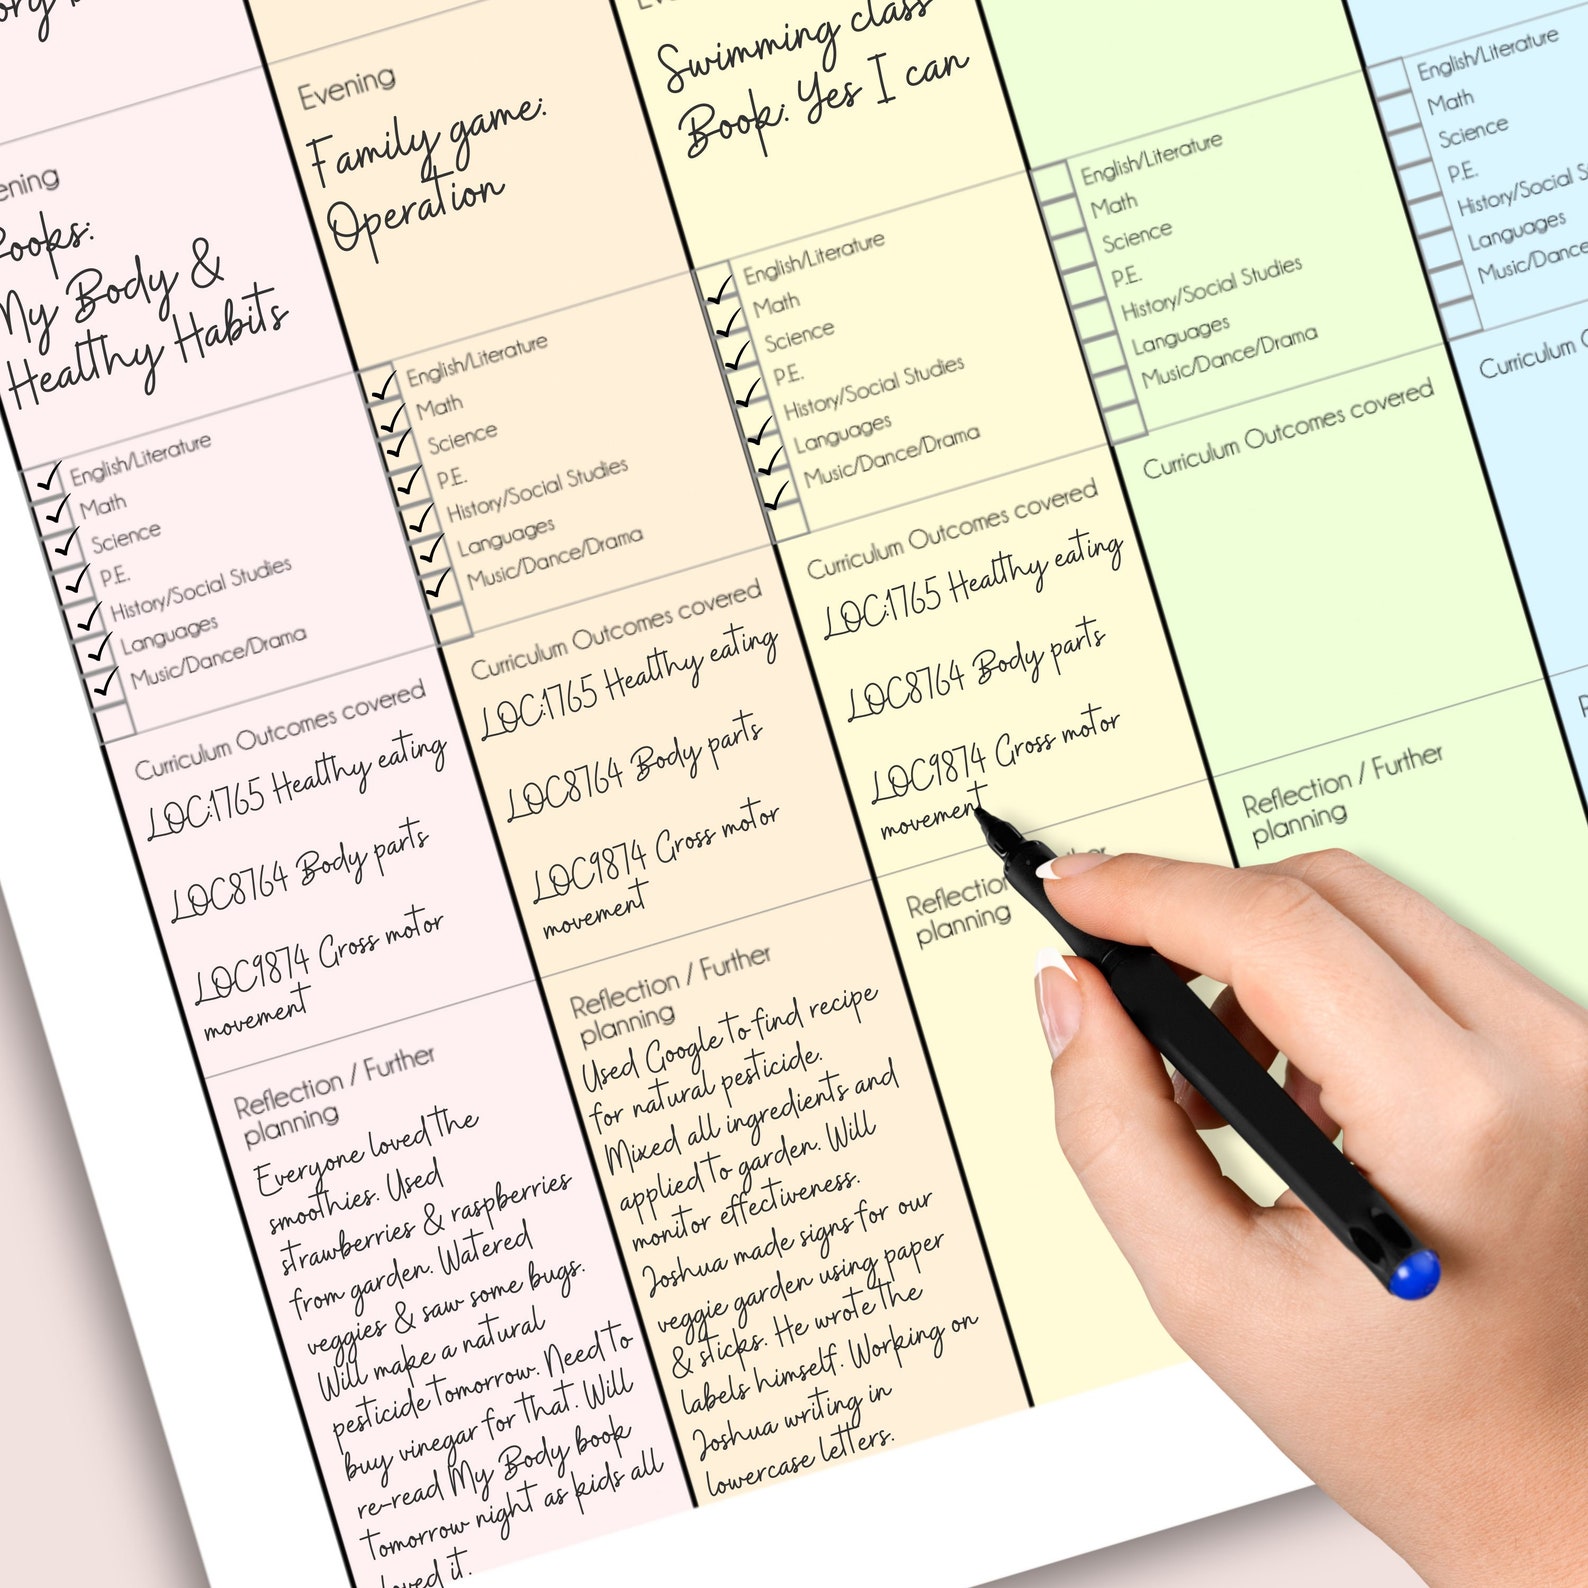 Evening
Books:
My Body &
Healthy Habits
English/Literature
Math
Science
P.E.
History/Social Studies
Languages
Music/Dance/Drama
Curriculum Outcomes covered
LOC:1765 Healthy eating
LOC8764 Body parts
LOC9874 Gross motor
movement
Reflection / Further
planning
Everyone loved the
smoothies. Used
strawberries & raspberries
from garden. Watered
veggies & saw some bugs.
Will make a natural
pesticide tomorrow. Need to
buy vinegar for that. Will
re-read My Body book
tomorrow night as kids all
loved it.
Evening
Family game:
Operation
English/Literature
Math
Science
P.E.
History/Social Studies
Languages
Music/Dance/Drama
Curriculum Outcomes covered
LOC:1765 Healthy eating
LOC8764 Body parts
LOC9874 Gross motor
movement
Reflection / Further
planning
Used Google to find recipe
for natural pesticide.
Mixed all ingredients and
applied to garden. Will
monitor effectiveness.
Joshua made signs for our
veggie garden using paper
& sticks. He wrote the
labels himself. Working on
Joshua writing in
lowercase letters.
Swimming class
Book: Yes I can
English/Literature
Math
Science
P.E.
History/Social Studies
Languages
Music/Dance/Drama
Curriculum Outcomes covered
LOC:1765 Healthy eating
LOC8764 Body parts
LOC9874 Gross motor
movement
Reflection / Further
planning
English/Literature
Math
Science
P.E.
History/Social Studies
Languages
Music/Dance/Drama
Curriculum Outcomes covered
Reflection / Further
planning
English/Literature
Math
Science
P.E.
History/Social
Languages
Music/Dance
Curriculum